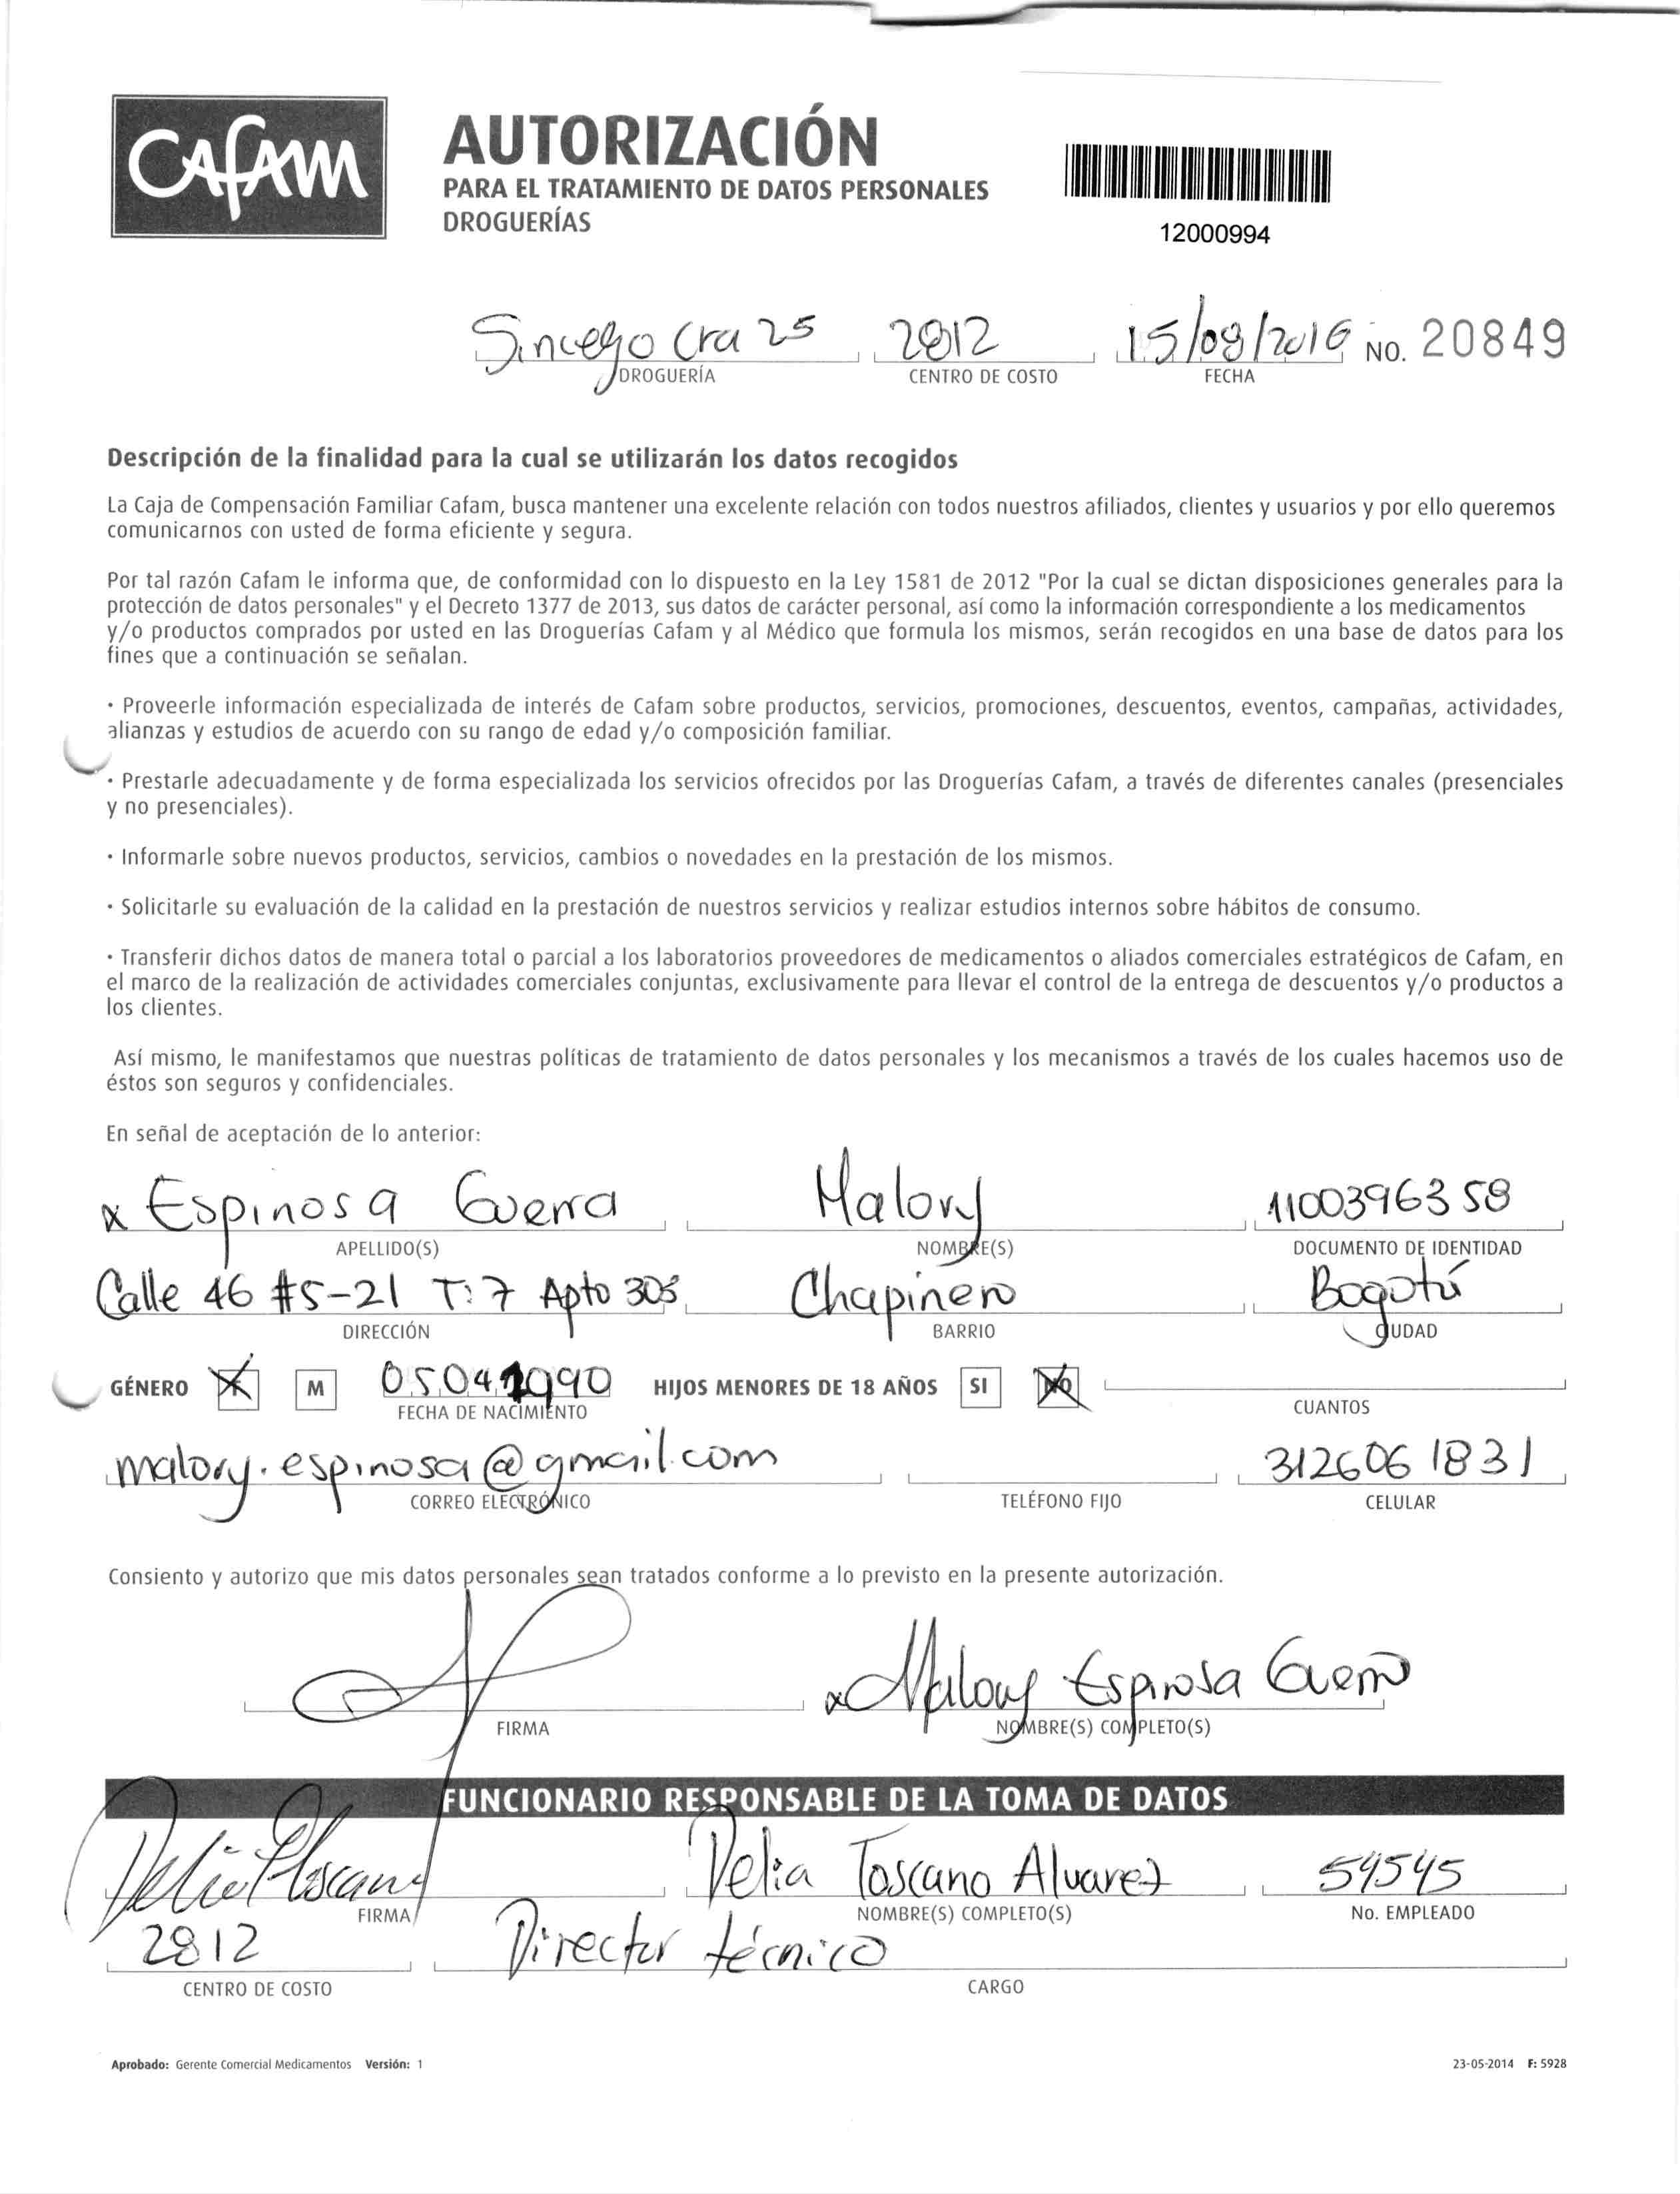 CAFAM
AUTORIZACIÓN
PARA EL TRATAMIENTO DE DATOS PERSONALES
DROGUERÍAS
12000994
Sincelejo Cra 25 2812 15/08/2016 NO. 20849
DROGUERÍA CENTRO DE COSTO FECHA
Descripción de la finalidad para la cual se utilizarán los datos recogidos
La Caja de Compensación Familiar Cafam, busca mantener una excelente relación con todos nuestros afiliados, clientes y usuarios y por ello queremos
comunicarnos con usted de forma eficiente y segura.
Por tal razón Cafam le informa que, de conformidad con lo dispuesto en la Ley 1581 de 2012 "Por la cual se dictan disposiciones generales para la
protección de datos personales" y el Decreto 1377 de 2013, sus datos de carácter personal, así como la información correspondiente a los medicamentos
y/o productos comprados por usted en las Droguerías Cafam y al Médico que formula los mismos, serán recogidos en una base de datos para los
fines que a continuación se señalan.
· Proveerle información especializada de interés de Cafam sobre productos, servicios, promociones, descuentos, eventos, campañas, actividades,
alianzas y estudios de acuerdo con su rango de edad y/o composición familiar.
· Prestarle adecuadamente y de forma especializada los servicios ofrecidos por las Droguerías Cafam, a través de diferentes canales (presenciales
y no presenciales).
· Informarle sobre nuevos productos, servicios, cambios o novedades en la prestación de los mismos.
· Solicitarle su evaluación de la calidad en la prestación de nuestros servicios y realizar estudios internos sobre hábitos de consumo.
· Transferir dichos datos de manera total o parcial a los laboratorios proveedores de medicamentos o aliados comerciales estratégicos de Cafam, en
el marco de la realización de actividades comerciales conjuntas, exclusivamente para llevar el control de la entrega de descuentos y/o productos a
los clientes.
Así mismo, le manifestamos que nuestras políticas de tratamiento de datos personales y los mecanismos a través de los cuales hacemos uso de
éstos son seguros y confidenciales.
En señal de aceptación de lo anterior:
x Espinosa Guerra Malory 1100396358
APELLIDO(S) NOMBRE(S) DOCUMENTO DE IDENTIDAD
Calle 46 #5-21 T:7 Apto 305 Chapinero Bogotá
DIRECCIÓN BARRIO CIUDAD
GÉNERO M 05041990 HIJOS MENORES DE 18 AÑOS SI NO
FECHA DE NACIMIENTO CUANTOS
malory.espinosa@gmail.com 3126061831
CORREO ELECTRÓNICO TELÉFONO FIJO CELULAR
Consiento y autorizo que mis datos personales sean tratados conforme a lo previsto en la presente autorización.
x Malory Espinosa Guerra
FIRMA NOMBRE(S) COMPLETO(S)
FUNCIONARIO RESPONSABLE DE LA TOMA DE DATOS
Delia Toscano Delia Toscano Alvarez 54545
FIRMA NOMBRE(S) COMPLETO(S) No. EMPLEADO
2812 Director técnico
CENTRO DE COSTO CARGO
Aprobado: Gerente Comercial Medicamentos Versión: 1 23-05-2014 F: 5928